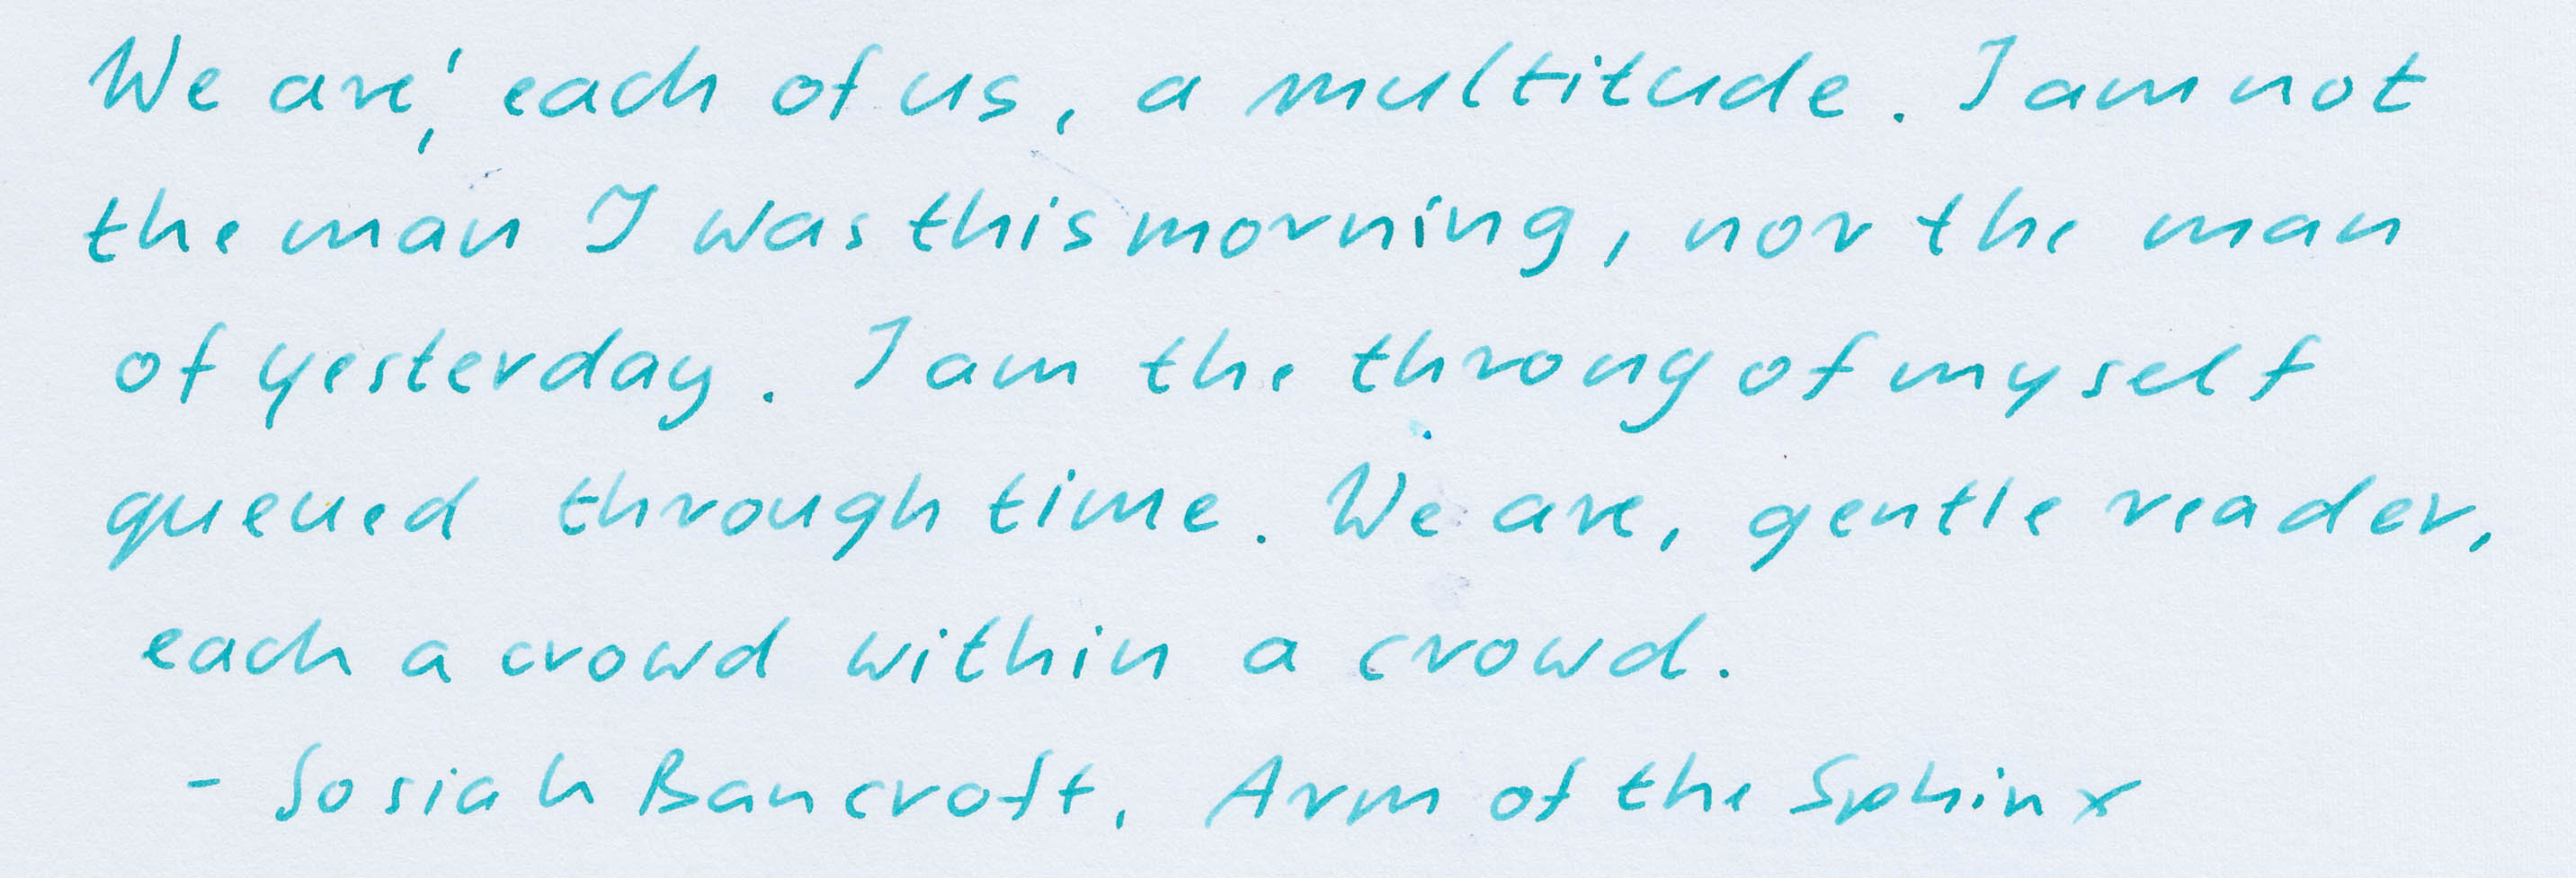 We are, each of us, a multitude. I am not
the man I was this morning, nor the man
of yesterday. I am the throng of myself
queued through time. We are, gentle reader,
each a crowd within a crowd.
- Josiah Bancroft, Arm of the Sphinx